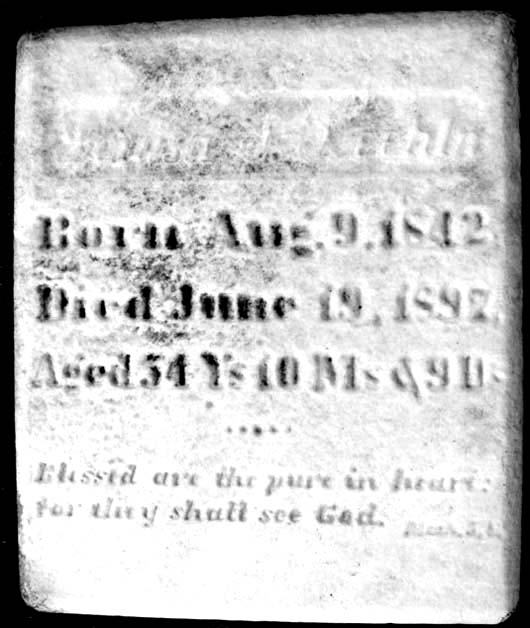 Born Aug. 9, 1842.
Died June 19, 1897.
Aged 54 Ys 10 Ms & 9 Ds
Blessed are the pure in heart:
for they shall see God. Math. 5, 8.